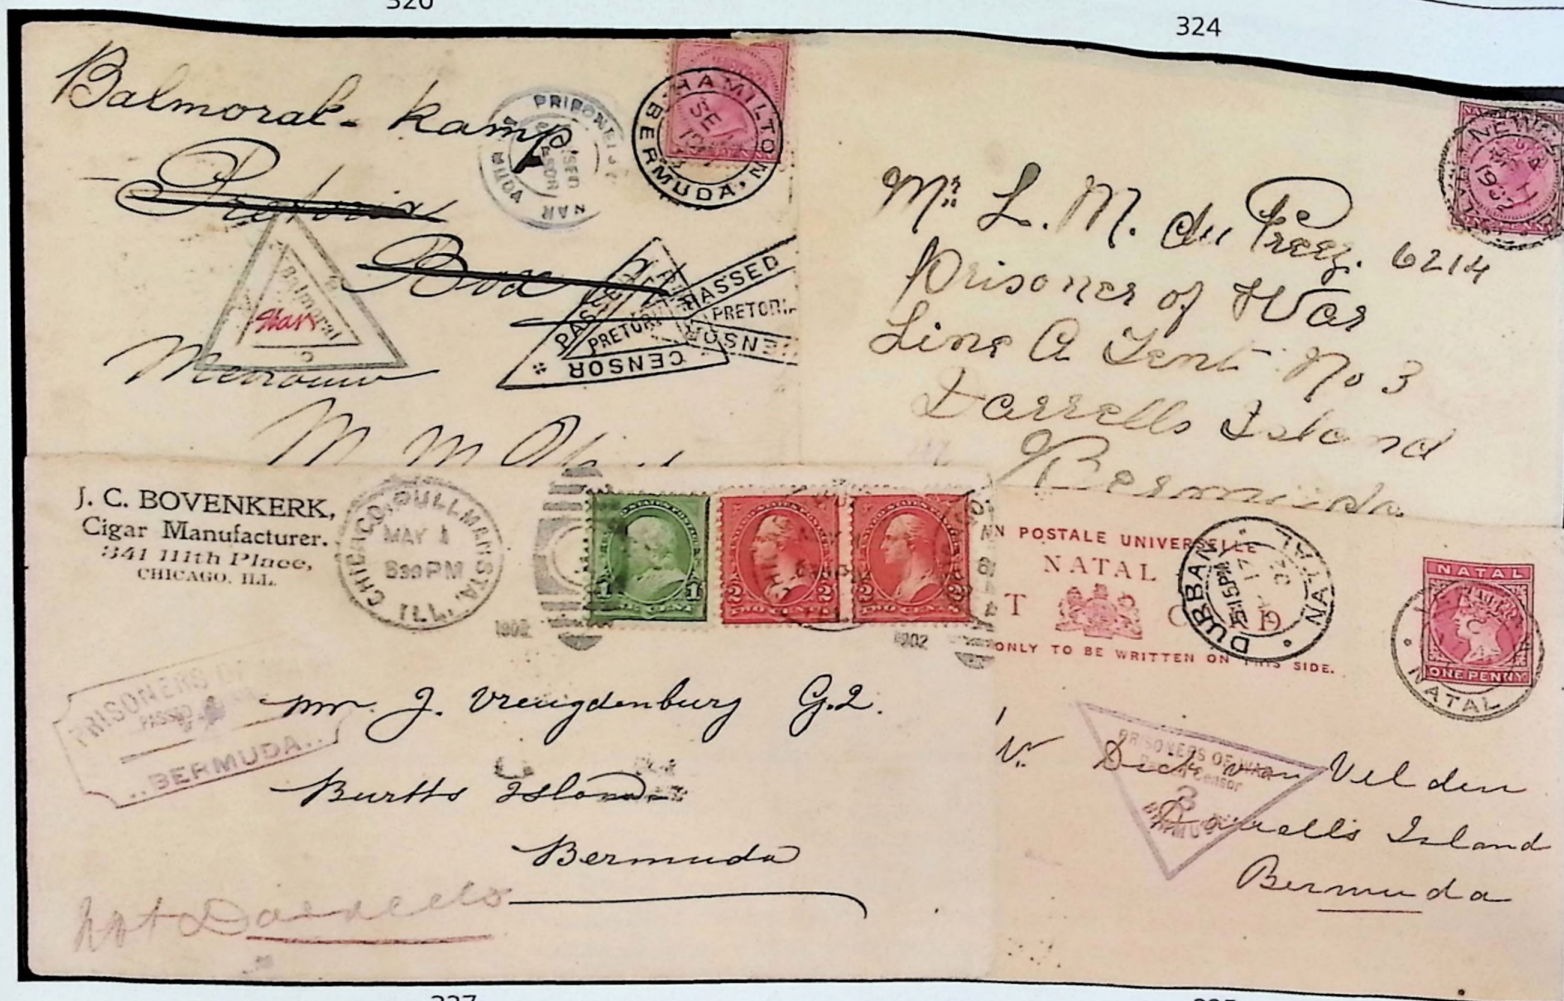 324
Balmoral - kamp
Pretoria
Box
PRISONERS
HAMILTON
BERMUDA
SE
Balmoral
PASSED
PRETORIA
CENSOR
PASSED
PRETORI
CENSOR
Mevrouw
M M
NEWC
1902
Mr. L. M. du Preez. 6214
Prisoner of War
Line A Tent No 3
Darrells Island
Bermuda
J. C. BOVENKERK,
Cigar Manufacturer.
341 111th Place,
CHICAGO, ILL.
CHICAGO, PULLMAN STA. ILL.
MAY 1
630 PM
1902
1902
1
2 TWO CENTS 2
2 TWO CENTS 2
PRISONERS OF
PASSED
BERMUDA
Mr. J. Vreugdenburg G.2.
Burtts Island
Bermuda
not Darrells
N POSTALE UNIVERSELLE
NATAL
T C
ONLY TO BE WRITTEN ON THIS SIDE.
DURBAN
NATAL
NATAL
ONE PENNY
NATAL
PRISONERS OF WAR
Passed Censor
3
BERMUDA
Dick van Velden
Darrells Island
Bermuda